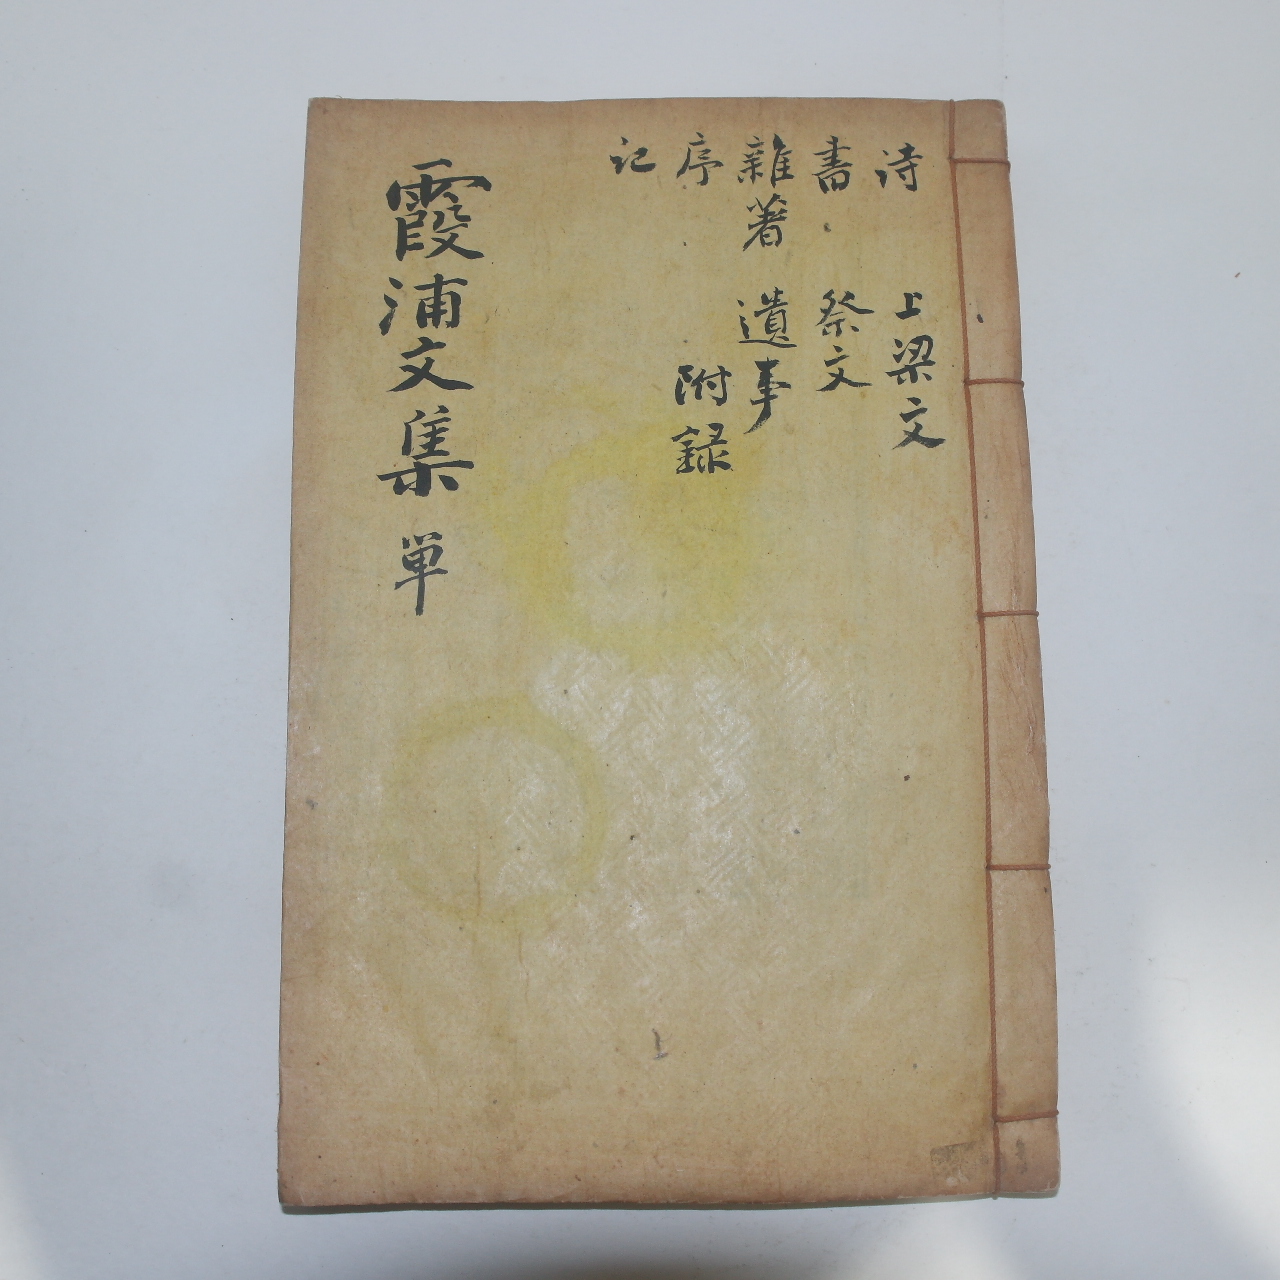 詩 上梁文
書 祭文
雜著 遺事
序 附録
記
霞浦文集 単